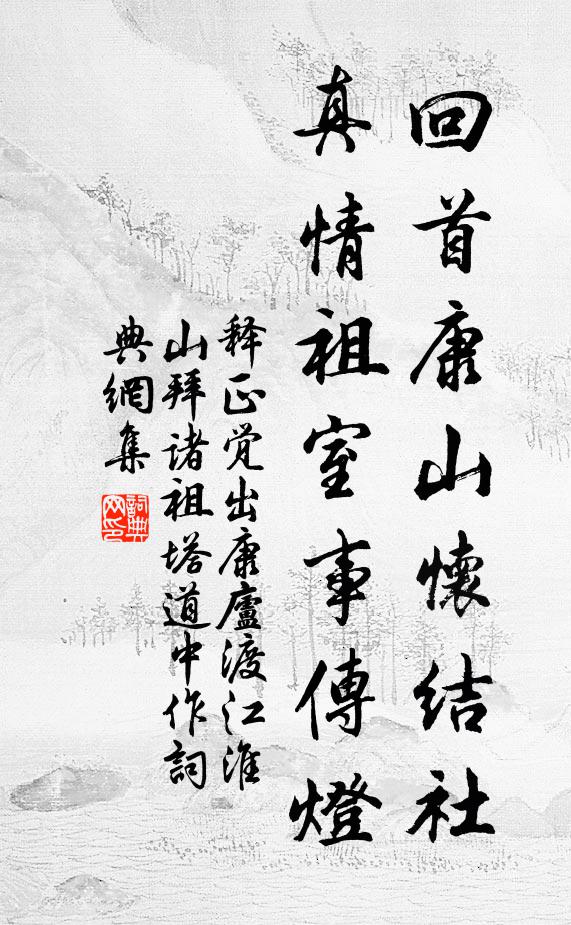 回首康山懷结社
真情祖室事傳燈
释正觉出康廬渡江淮
山拜诸祖塔道中作詞
典網集
詞典网印